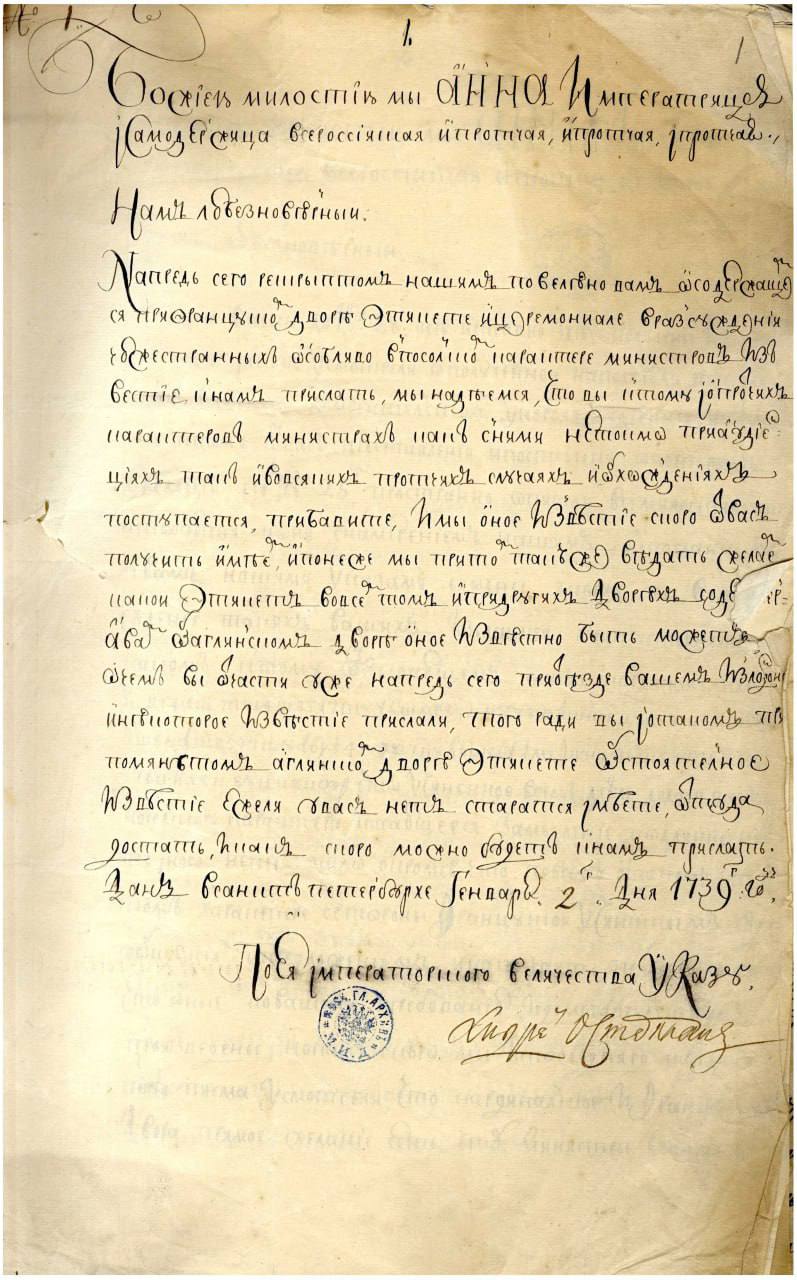 № 1
1.
1
Божиею милостию мы Анна Императрица
и самодержица всероссииская и протчая, и протчая, и протчая.,
Нам любезноверныи.
Напредь сего рескрыптом нашим повелено вам о содержаще
ся при францушском дворе этикете и церемониале в разсуждении
чюжестранных особливо в посолском карактере министров из
вестие к нам прислать, мы надеемся, что вы к тому и о протчих
карактеров министрах как с ними не токмо при аудие-
нциях так и во всяких протчих случаях и обхождениях
поступается, прибавите, и мы оное известие скоро от вас
получить имеем, и понеже мы при том также ведать желаем
какой этикет во всем том и при других дворех
а вам о аглинском дворе оное известно быть может
о чем вы отчасти уже напредь сего при отъезде вашем из Лондона
и некоторое известие прислали, того ради вы и о таком при
помянутом аглинском дворе этикете обстоятелное
известие ежели у вас нет старатся имеете, откуда
достать, и как скоро можно будет к нам прислать.
Дан в Санктъпетербурхе генваря 2 г дня 1739 г году.
По Ея императорского величества указу.
Андрей Остерман